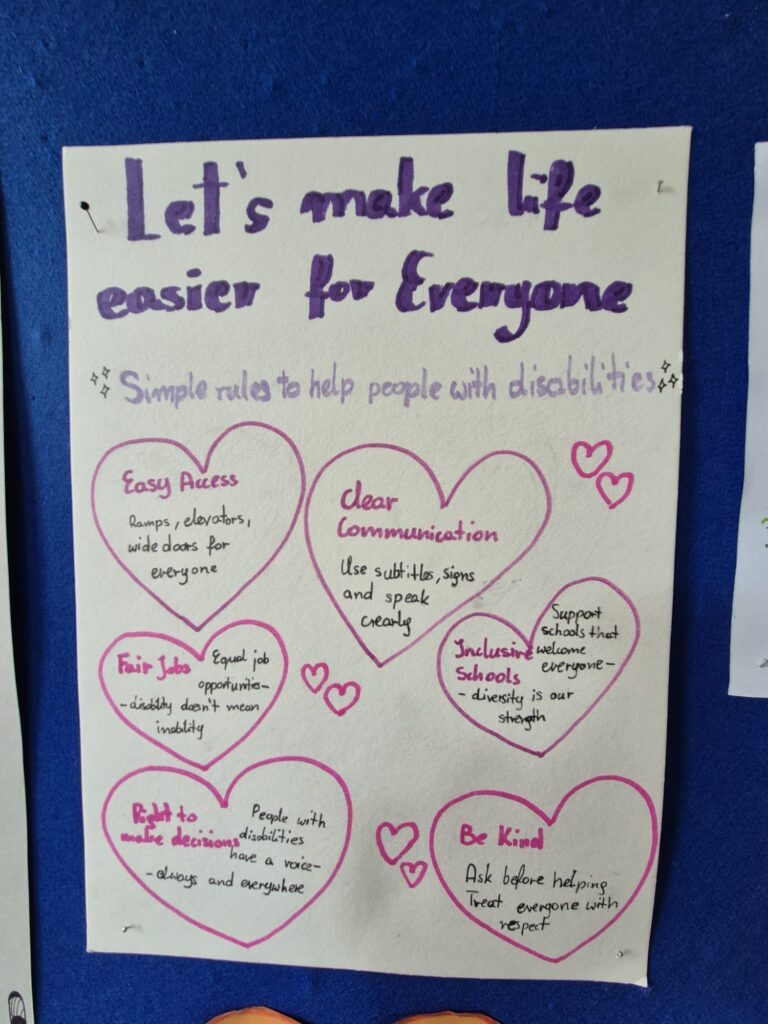 Let's make life
easier for Everyone
Simple rules to help people with disabilities
Easy Access
Ramps, elevators,
wide doors for
everyone
Clear
Communication
Use subtitles, signs
and speak
crearly
Fair Jobs Equal job
opportunities-
- disability doesn't mean
inability
Inclusive
Schools
Support
schools that
welcome
everyone-
- diversity is our
strength
Right to
make decisions
People with
disibilities
have a voice-
- always and everywhere
Be Kind
Ask before helping
Treat everyone with
respect